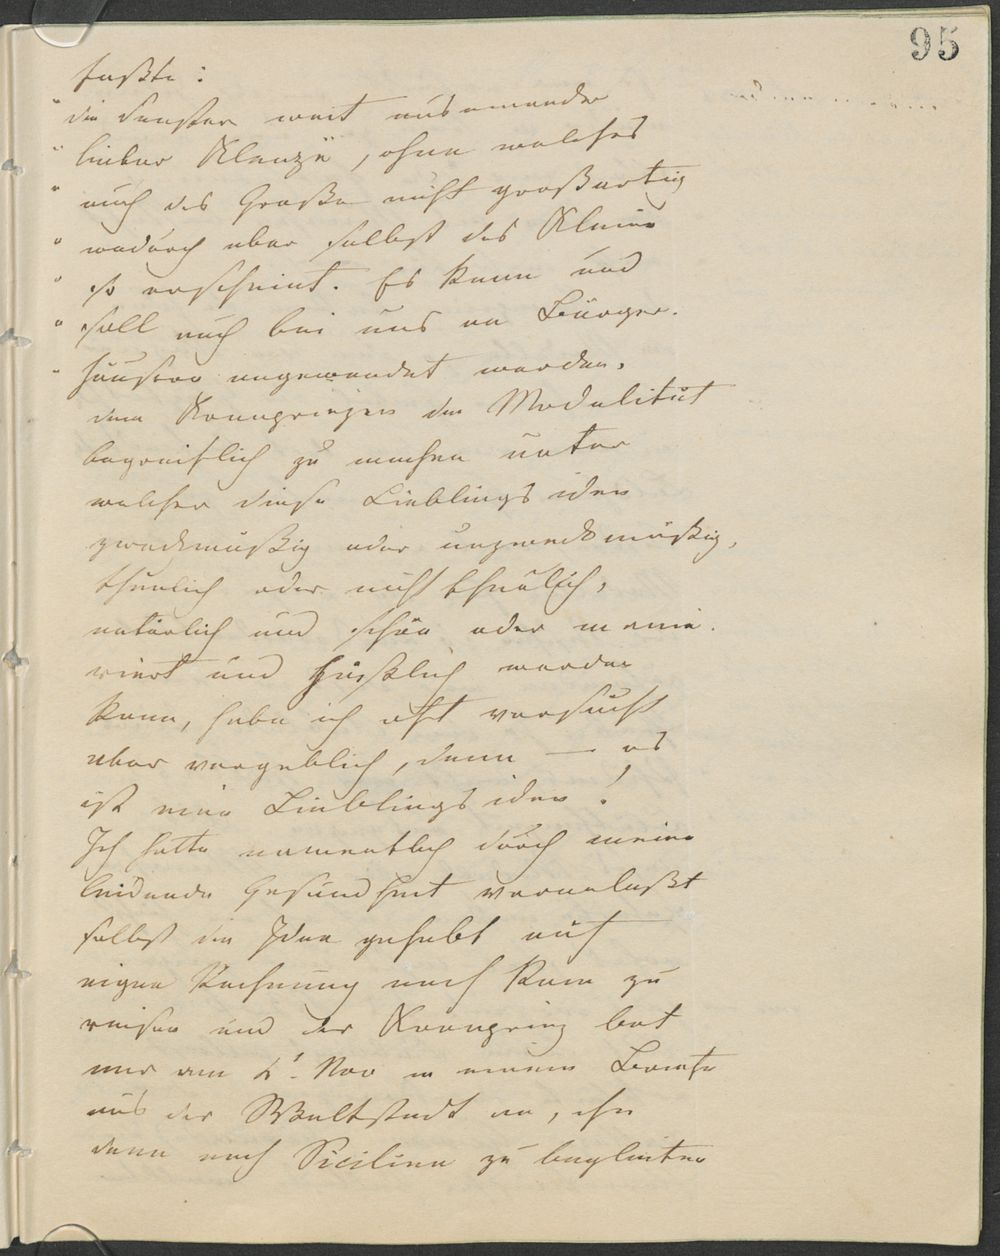 95
faßte:
"die Fenster weit auseinander
"lieber Klenze, ohne welches
"auch das Große nicht großartig
"wodurch aber selbst das Kleine
"so erscheint. Es kann und
"soll auch bei uns an Bürger-
"häusern angewendet werden.
dem Kronprinzen die Modalität
begreiflich zu machen unter
welcher diese Lieblingsidee
zweckmäßig oder unzweckmäßig,
thunlich oder nicht thunlich,
natürlich und schön oder manie-
riert und häßlich werden
kann, habe ich oft versucht
aber vergeblich, denn — es
ist eine Lieblingsidee!
Ich hatte namentlich durch meine
leidende Gesundheit veranlaßt
selbst die Idee gehabt auf
eigene Rechnung nach Rom zu
reisen und der Kronprinz bot
mir am Nov in einem Briefe
aus der Weltstadt an, ihn
dann nach Sicilien zu begleiten